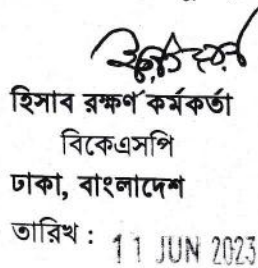 হিসাব রক্ষণ কর্মকর্তা
বিকেএসপি
ঢাকা, বাংলাদেশ
তারিখ : 11 JUN 2023